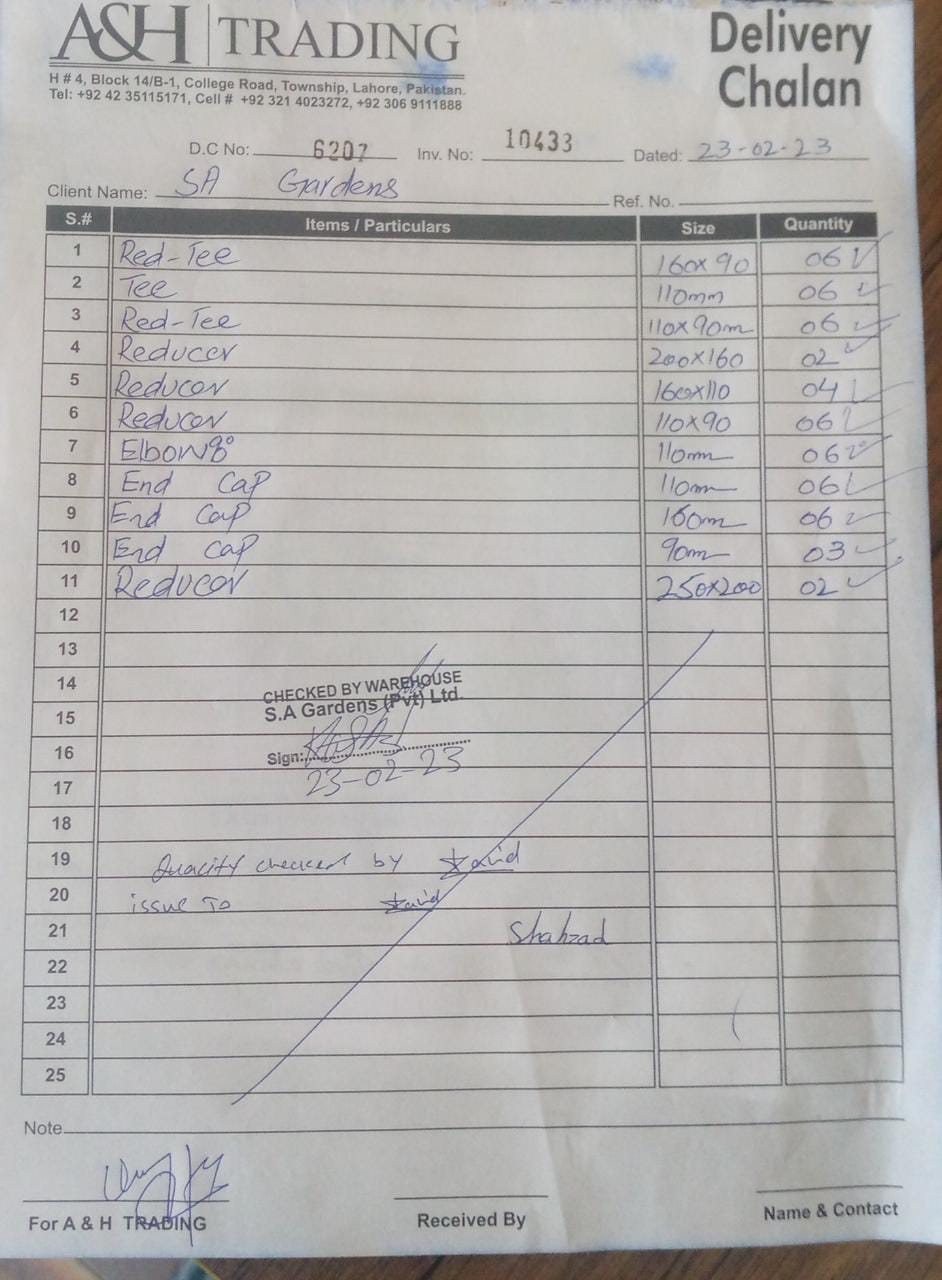 A&H TRADING
Delivery Chalan
H # 4, Block 14/B-1, College Road, Township, Lahore, Pakistan.
Tel: +92 42 35115171, Cell # +92 321 4023272, +92 306 9111888
D.C No: 6207 Inv. No: 10433 Dated: 23-02-23
Client Name: SA Gardens Ref. No.
S.# Items / Particulars Size Quantity
1 Red-Tee 160x90 06
2 Tee 110mm 06
3 Red-Tee 110x90m 06
4 Reducer 200x160 02
5 Reducer 160x110 04
6 Reducer 110x90 06
7 Elbow 110mm 06
8 End Cap 110mm 06
9 End Cap 160m 06
10 End Cap 90m 03
11 Reducer 250x200 02
12
13
14
CHECKED BY WAREHOUSE
15 S.A Gardens (Pvt) Ltd.
16 Sign:
17 23-02-23
18
19 Quality checked by
20 issue To
21 Shahzad
22
23
24
25
Note
For A & H TRADING Received By Name & Contact